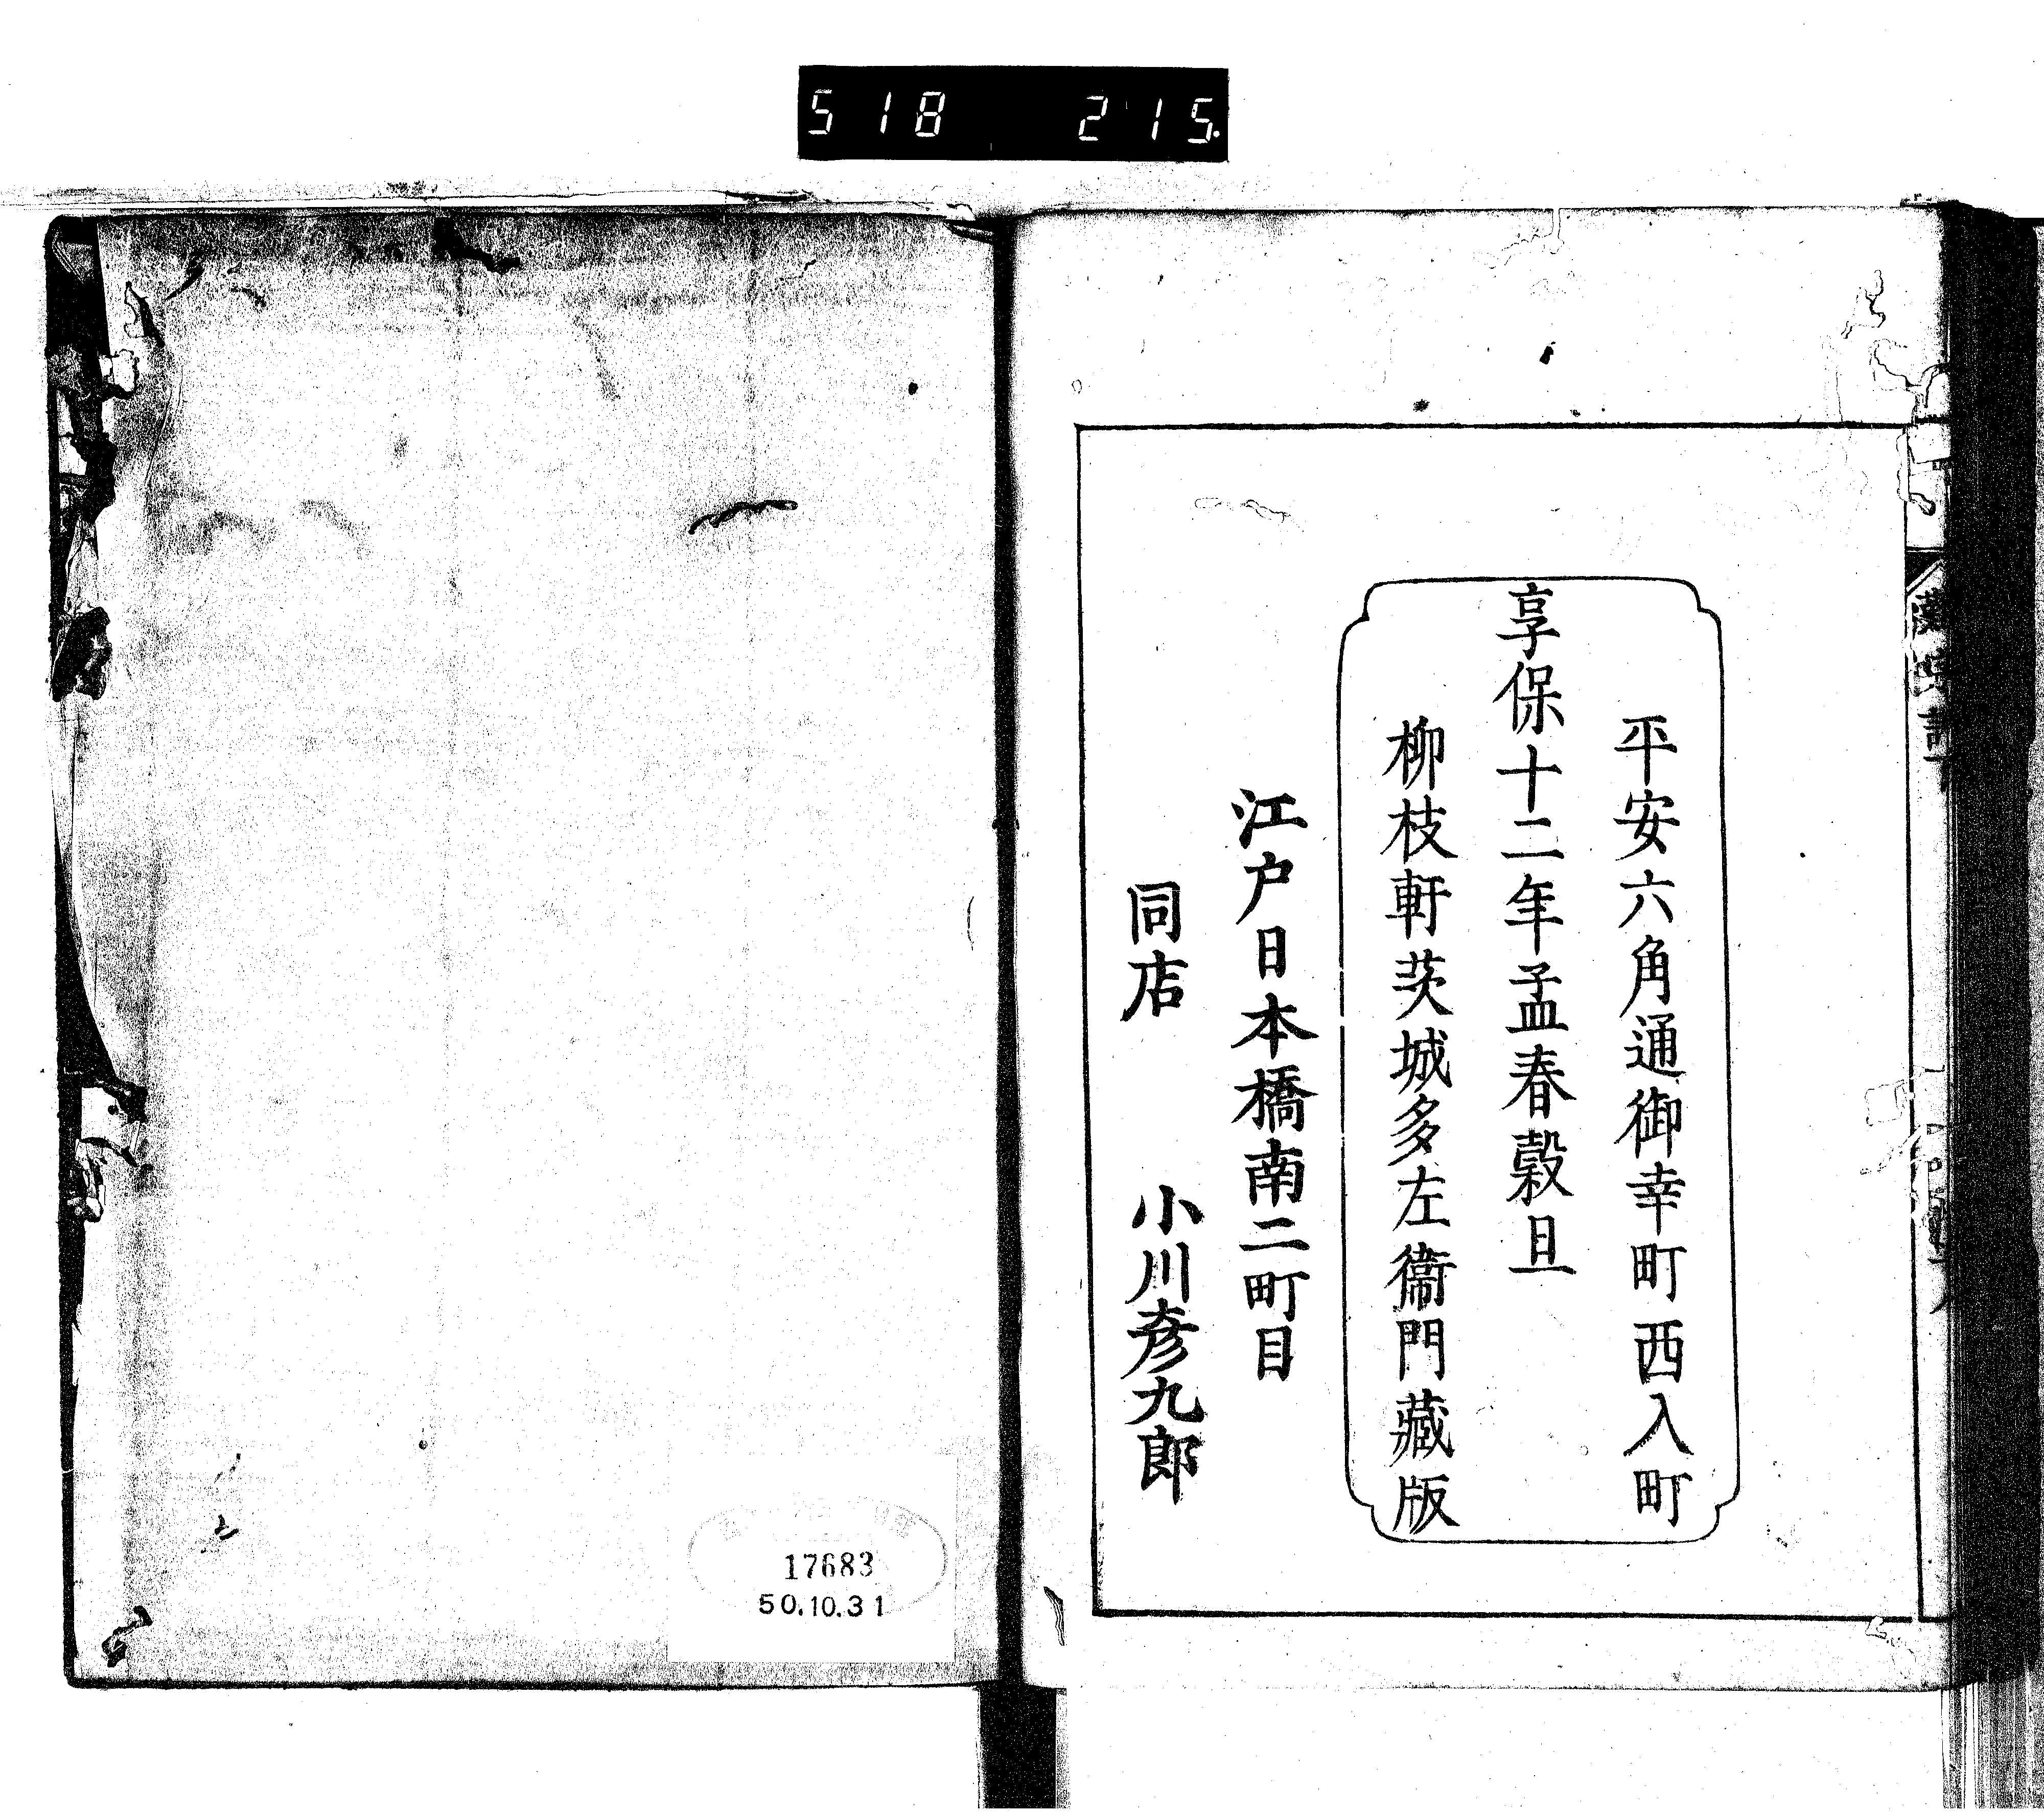 518 215.
平安六角通御幸町西入町
享保十二年孟春穀旦
柳枝軒茨城多左衞門藏版
江戸日本橋南二町目
同店 小川彦九郎
17683
50.10.31